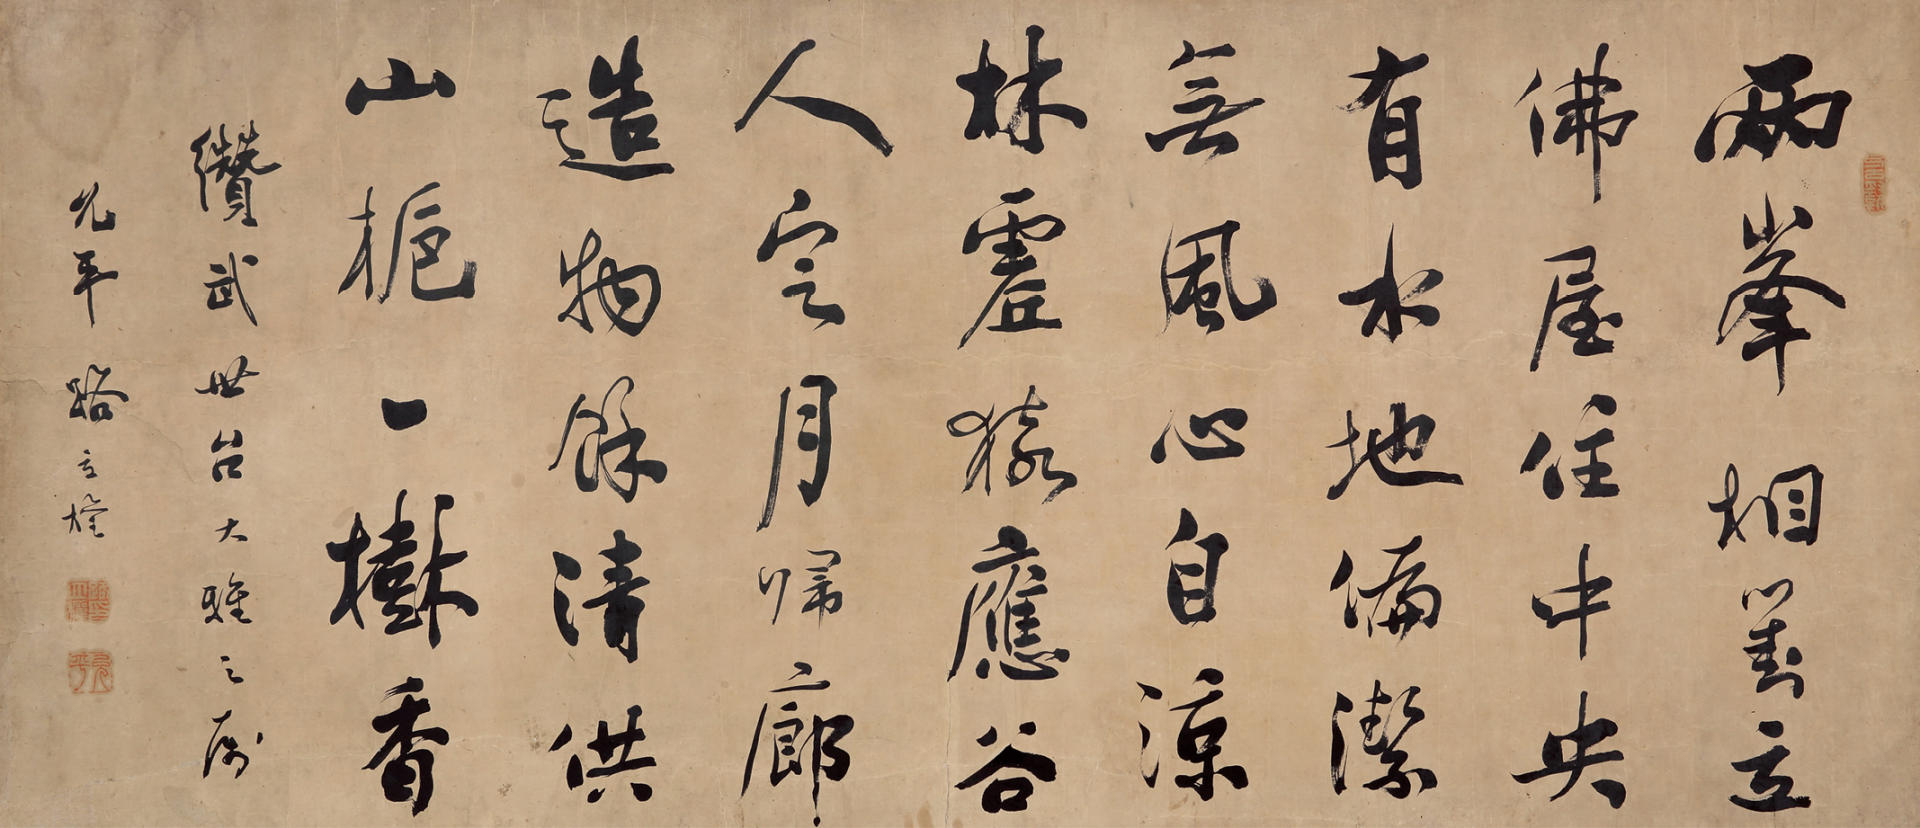 兩峯相對立
佛屋住中央
有水地偏潔
無風心自涼
林虛猿應谷
人定月歸廊
造物餘清供
山梔一樹香
纘武世台大雅之属
允平路立權